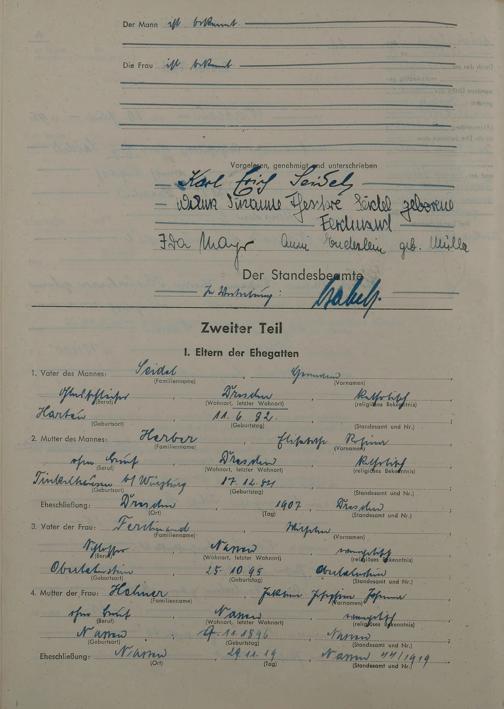 Der Mann ist bekannt
Die Frau ist bekannt
Vorgelesen, genehmigt und unterschrieben
Karl Erich Seidel
Susanne Seidel geborene
Ferdinand
Ida Mayr Anni Enderlein geb. Müller
Der Standesbeamte
In Vertretung:
Zweiter Teil
I. Eltern der Ehegatten
1. Vater des Mannes: Seidel
(Familienname) (Vornamen)
Dresden katholisch
(Beruf) (Wohnort, letzter Wohnort) (religiöses Bekenntnis)
11.6.82.
(Geburtsort) (Geburtstag) (Standesamt und Nr.)
2. Mutter des Mannes: Herber Elisabeth
(Familienname) (Vornamen)
ohne Beruf Dresden katholisch
(Beruf) (Wohnort, letzter Wohnort) (religiöses Bekenntnis)
17.12.84
(Geburtsort) (Geburtstag) (Standesamt und Nr.)
Eheschließung: Dresden 1907 Dresden
(Ort) (Tag) (Standesamt und Nr.)
3. Vater der Frau: Ferdinand Wilhelm
(Familienname) (Vornamen)
Schlosser Nassau evangelisch
(Beruf) (Wohnort, letzter Wohnort) (religiöses Bekenntnis)
Oberlahnstein 25.10.95 Oberlahnstein
(Geburtsort) (Geburtstag) (Standesamt und Nr.)
4. Mutter der Frau: Johanna
(Familienname) (Vornamen)
ohne Beruf Nassau evangelisch
(Beruf) (Wohnort, letzter Wohnort) (religiöses Bekenntnis)
Nassau 11.1896 Nassau
(Geburtsort) (Geburtstag) (Standesamt und Nr.)
Eheschließung: Nassau 29.11.19 Nassau 44/1919
(Ort) (Tag) (Standesamt und Nr.)